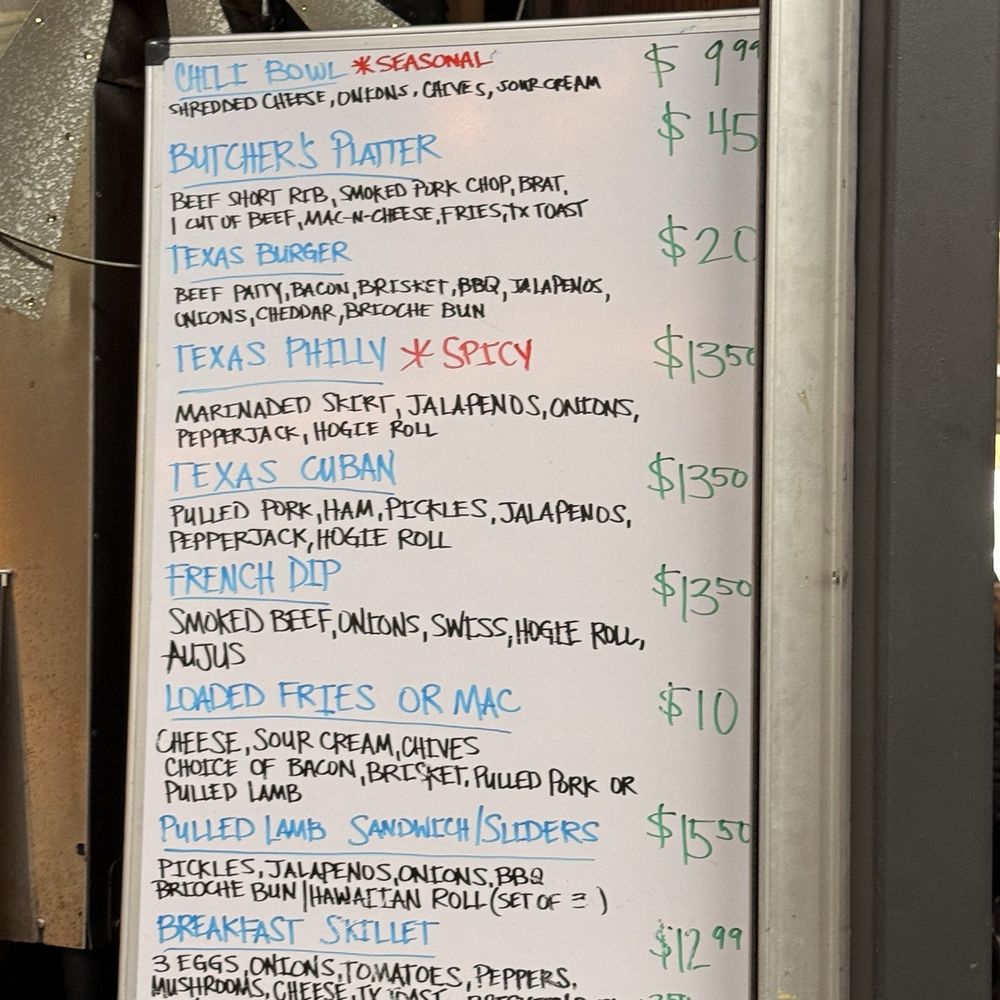 CHILI BOWL *SEASONAL $ 9 99
SHREDDED CHEESE, ONIONS, CHIVES, SOUR CREAM
BUTCHER'S PLATTER $ 45
BEEF SHORT RIB, SMOKED PORK CHOP, BRAT,
1 CUT OF BEEF, MAC-N-CHEESE, FRIES, TX TOAST
TEXAS BURGER $20
BEEF PATTY, BACON, BRISKET, BBQ, JALAPENOS,
ONIONS, CHEDDAR, BRIOCHE BUN
TEXAS PHILLY *SPICY $13 50
MARINADED SKIRT, JALAPENOS, ONIONS,
PEPPERJACK, HOGIE ROLL
TEXAS CUBAN $13 50
PULLED PORK, HAM, PICKLES, JALAPENOS,
PEPPERJACK, HOGIE ROLL
FRENCH DIP $13 50
SMOKED BEEF, ONIONS, SWISS, HOGIE ROLL,
AUJUS
LOADED FRIES OR MAC $10
CHEESE, SOUR CREAM, CHIVES
CHOICE OF BACON, BRISKET, PULLED PORK OR
PULLED LAMB
PULLED LAMB SANDWICH/SLIDERS $15 50
PICKLES, JALAPENOS, ONIONS, BBQ
BRIOCHE BUN | HAWAIIAN ROLL (SET OF 3)
BREAKFAST SKILLET $12 99
3 EGGS, ONIONS, TOMATOES, PEPPERS,
MUSHROOMS, CHEESE, TX TOAST